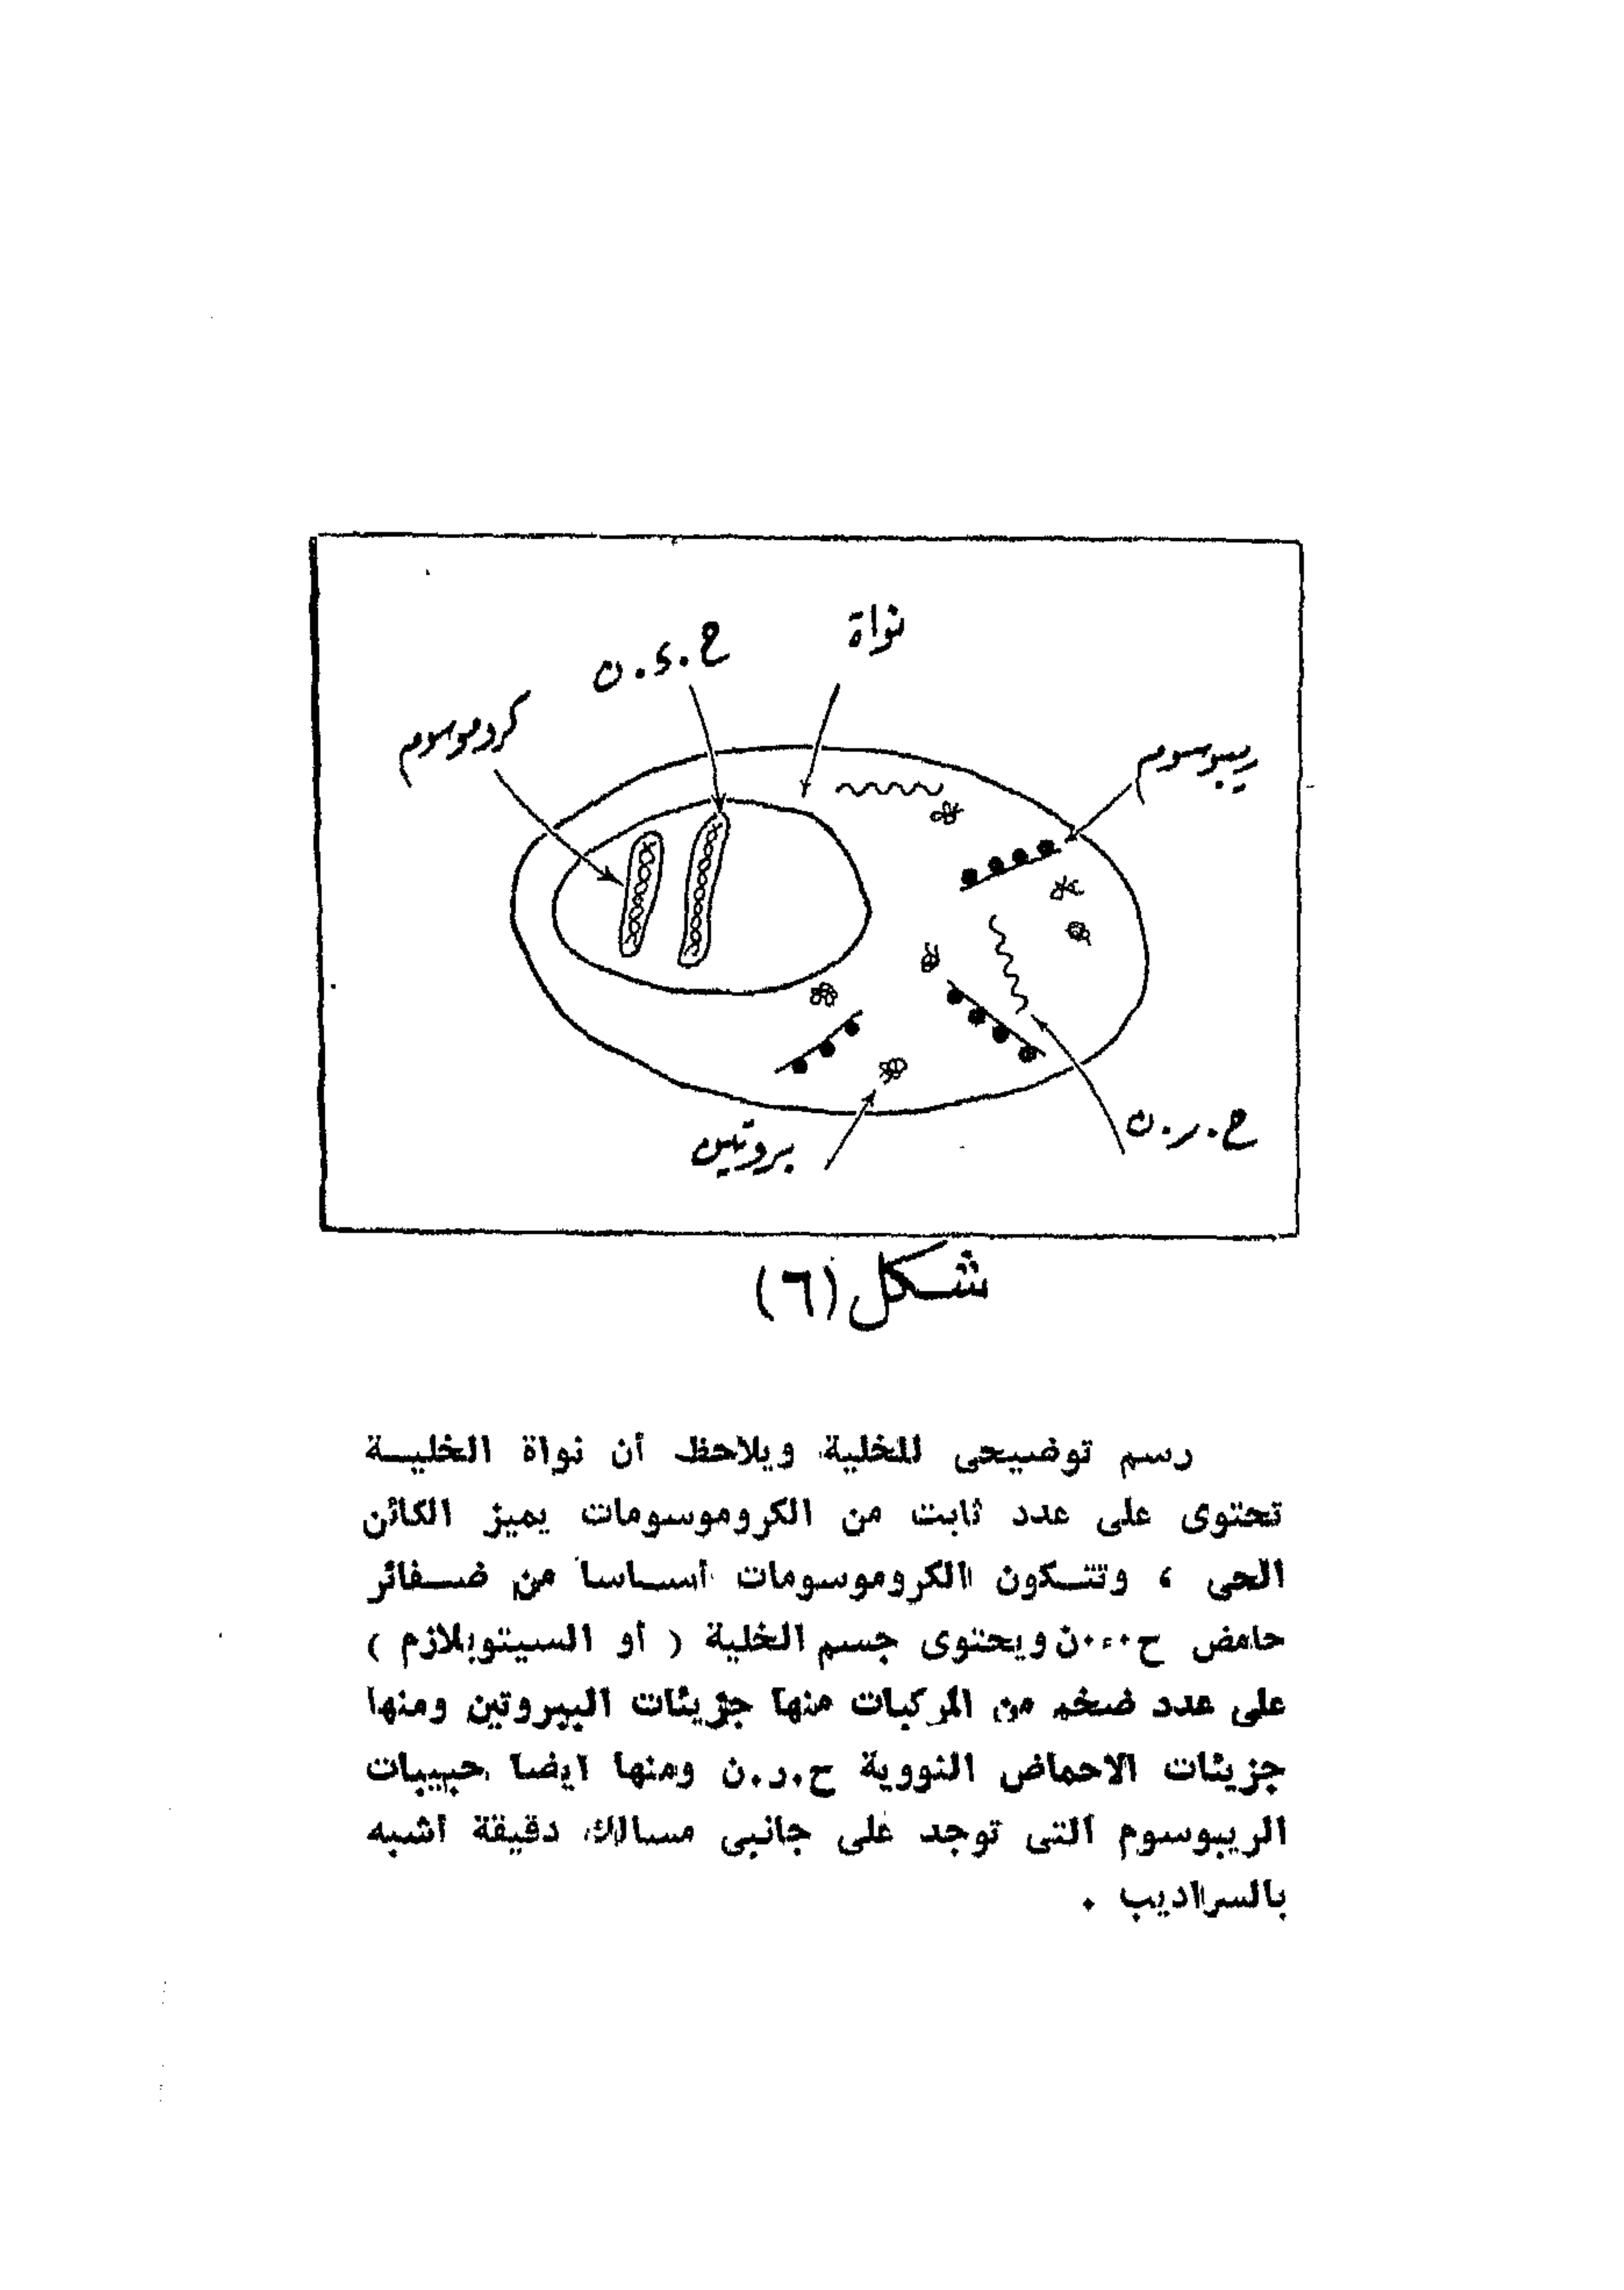 نواة
ح.د.ن
كروموسوم
ريبوسوم
ح.ر.ن
بروتين
شكل (٦)
رسم توضيحى للخلية ويلاحظ أن نواة الخليـــة
تحتوى على عدد ثابت من الكروموسومات يميز الكائن
الحى ، وتتـــكون الكروموسومات أســـاسا من ضـــفائر
حامض ح.د.ن ويحتوى جسم الخلية ( أو السيتوبلازم )
على عدد ضخم من المركبات منها جزيئات البروتين ومنها
جزيئات الاحماض النووية ح.ر.ن ومنها ايضا حبيبات
الريبوسوم التى توجد على جانبى مسالك دقيقة أشبه
بالسراديب .